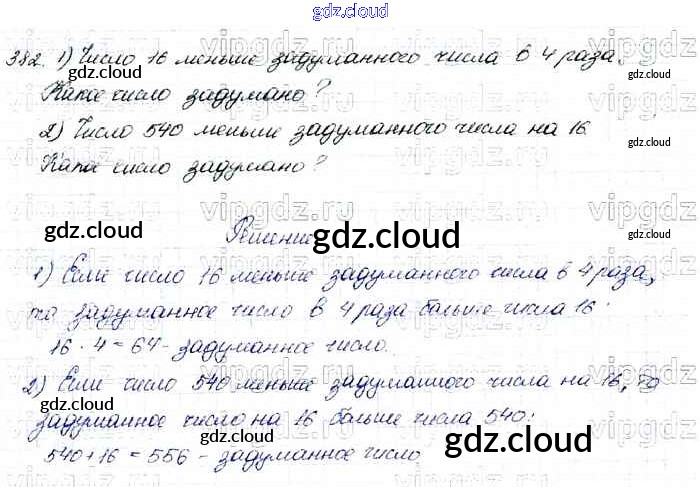 gdz.cloud
382. 1) Число 16 меньше задуманного числа в 4 раза.
gdz.cloud
Какое число задумано?
gdz.cloud
2) Число 540 меньше задуманного числа на 16
Какое число задумано?
gdz.cloud
vipgdz.ru vipgdz.ru vipgdz.ru
Решение
gdz.cloud
1) Если число 16 меньше задуманного числа в 4 раза,
то задуманное число в 4 раза больше числа 16.
16 · 4 = 64 - задуманное число.
2) Если число 540 меньше задуманного числа на 16, то
gdz.cloud
gdz.cloud
задуманное число на 16 больше числа 540:
gdz.cloud
540 + 16 = 556 - задуманное число